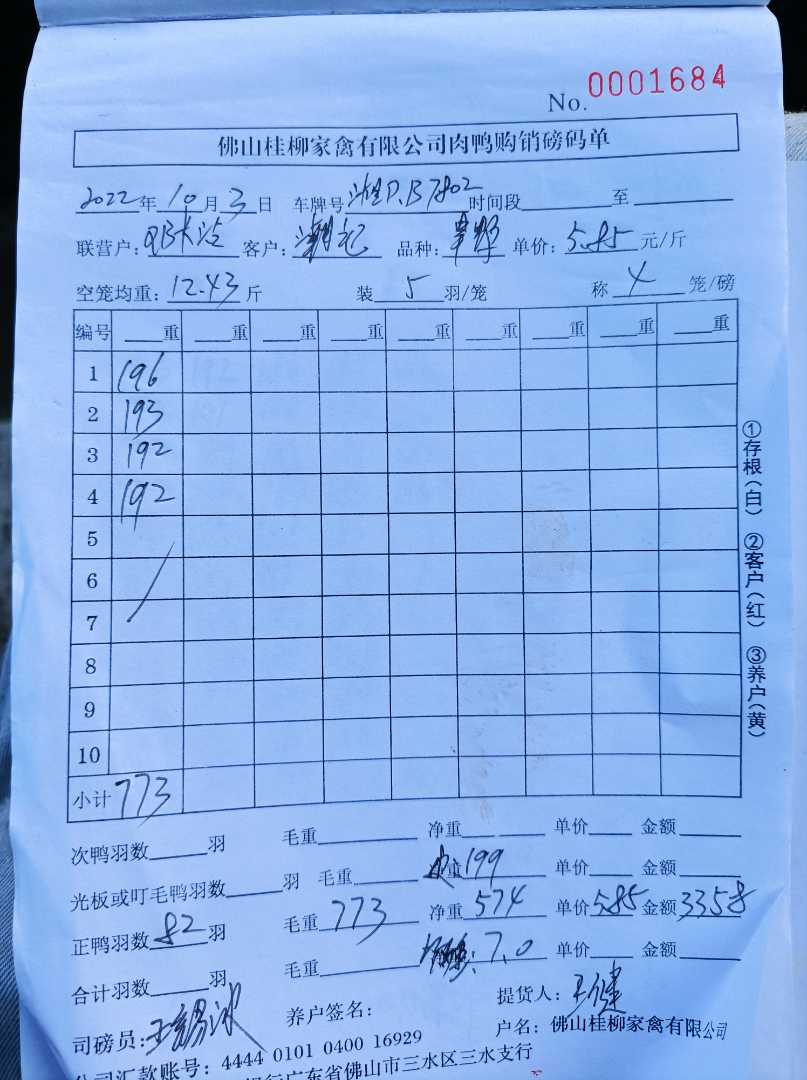 No. 0001684
佛山桂柳家禽有限公司肉鸭购销磅码单
2022年10月3日 车牌号 湘D.B7802 时间段 至
联营户: 客户: 品种: 单价: 5.85 元/斤
空笼均重: 12.43 斤 装 5 羽/笼 称 4 笼/磅
编号 重 重 重 重 重 重 重 重 重
1 196
2 193
3 192
4 192
5
6
7
8
9
10
小计 773
次鸭羽数 羽 毛重 净重 单价 金额
光板或叮毛鸭羽数 羽 毛重 皮重 199 单价 金额
正鸭羽数 82 羽 毛重 773 净重 574 单价 585 金额 3358
合计羽数 羽 毛重 7.0 单价 金额
司磅员: 养户签名: 提货人: 王健
户名: 佛山桂柳家禽有限公司
公司汇款账号: 4444 0101 0400 16929
银行广东省佛山市三水区三水支行
①存根(白) ②客户(红) ③养户(黄)